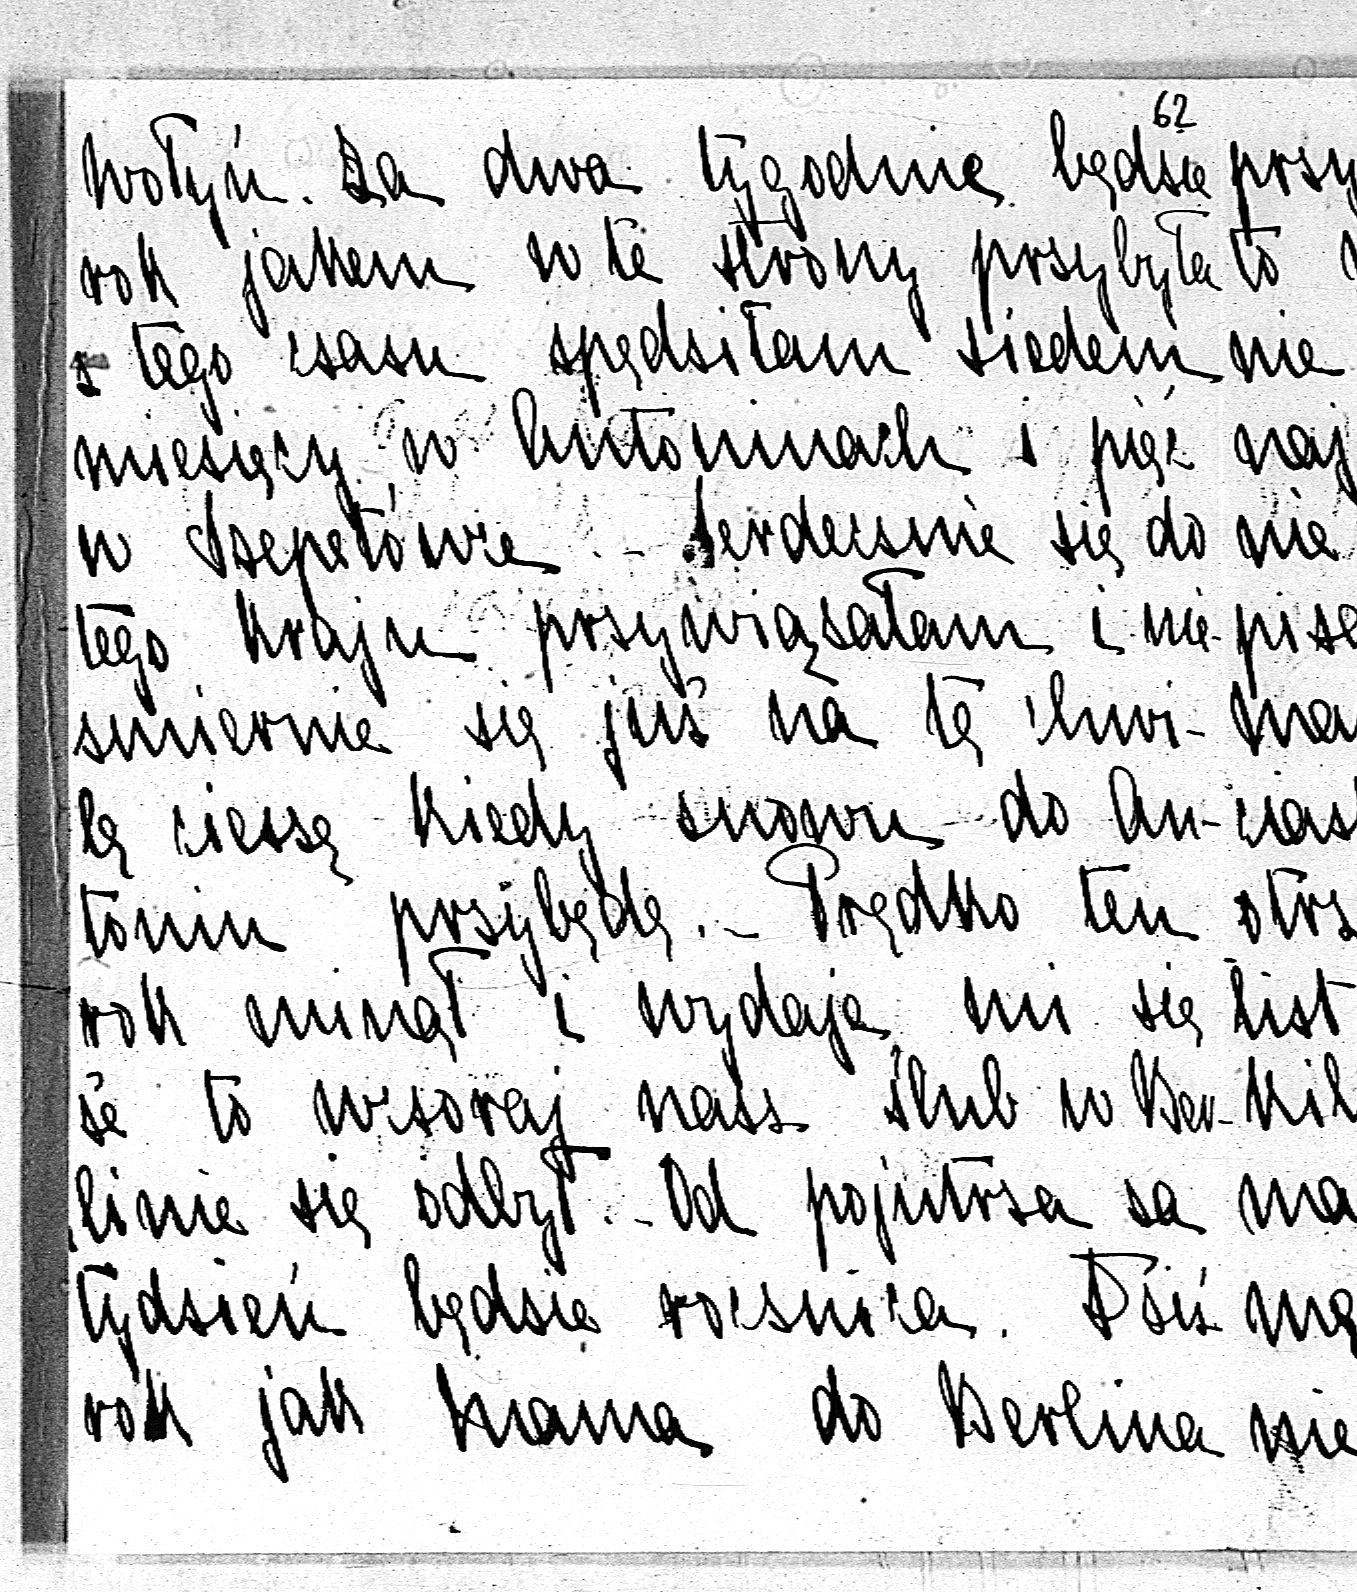 62
Wołyń. Za dwa tygodnie będzie przy
rok jakem w te strony przybyła to
z tego czasu spędziłam siedem nie
miesięcy w Antoninach i pięć naj
w Szepetówce. - Serdecznie się do nie
tego kraju przywiązałam i nie- pise
zmiernie się już na tę chwi- ma
lę cieszę kiedy znowu do An- cias
tonin przybędę. - Prędko ten otrz
rok minął i wydaje mi się list
że to wczoraj nasz ślub w Ber- Kil
linie się odbył. - Od pojutrza za ma
tydzień będzie rocznica. Dziś mę
rok jak Mama do Berlina nie